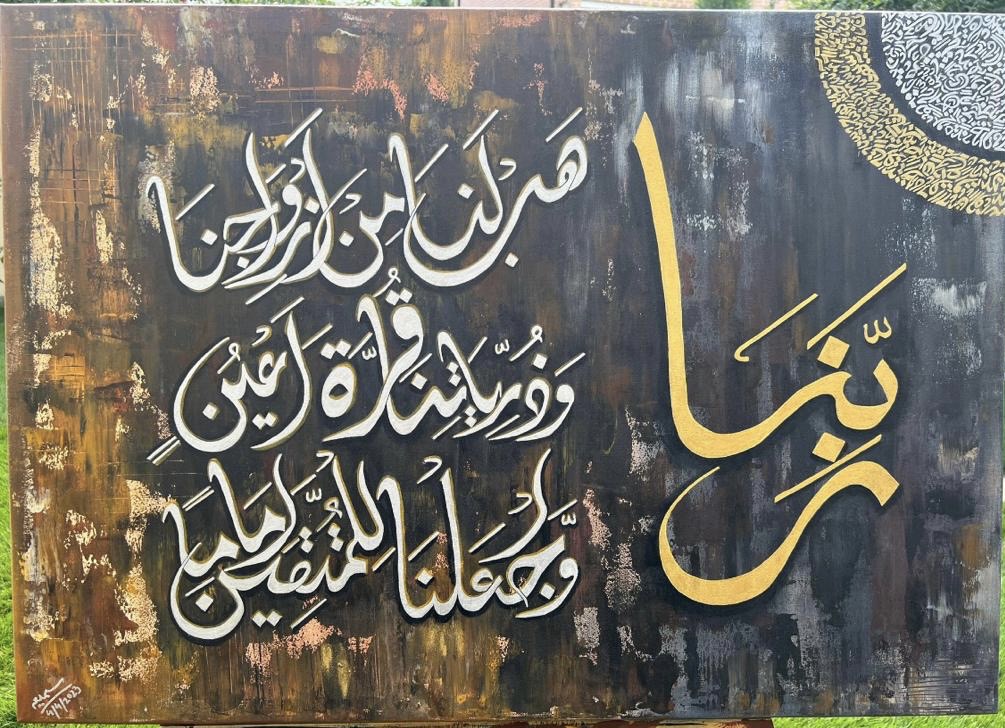 رَبَّنَا
هَب لَنَا مِن اَزوَاجِنَا
وَذُرِّيَاتِنَا قُرَّةَ اَعيُنٍ
وَّاجعَلنَا لِلمُتَّقِينَ اِمَامًا
4/4/2023